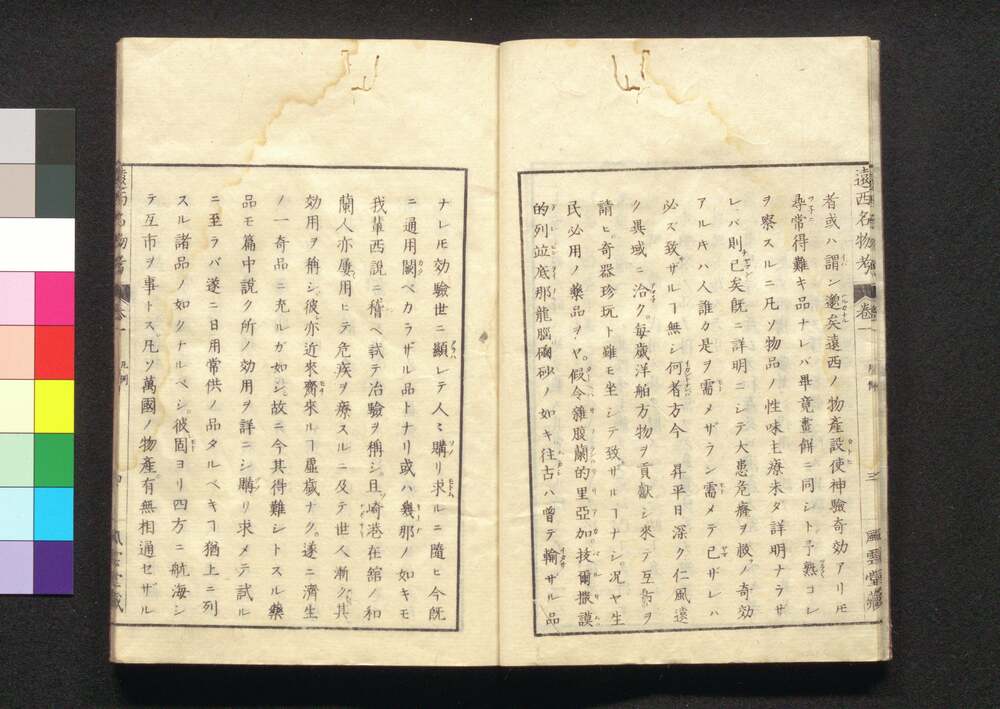 遠西名物考 卷一 凡例 三 風雲堂藏
者或ハ謂ン邈矣遠西ノ物産設使神驗奇効アリ𪜈
尋常得難キ品ナレバ畢竟畫餅ニ同シト予熟コレ
ヲ察スルニ凡ソ物品ノ性味主療未ダ詳明ナラザ
レバ則已矣既ニ詳明ニシテ大患危癠ヲ救ノ奇効
アルキハ人誰カ是ヲ需メザラン需メテ已ザレハ
必ズ致ザルヿ無シ何者方今 昇平日深ク仁風遠
ク異域ニ洽ク毎歳洋舶方物ヲ貢獻シ來テ互市ヲ
請ヒ奇器珍玩ト雖モ坐シテ致ザルヿナシ況ヤ生
民必用ノ藥品ヲヤ假令雜腹蘭的里亞加拔爾撒謨
的列並底那龍腦磠砂ノ如キ往古ハ曾テ輸ザル品
ナレ𪜈効驗世ニ顯レテ人々購リ求ルニ隨ヒ今既
ニ通用闕ベカラザル品トナリ或ハ幾那ノ如キモ
我輩西説ニ稽ヘ試テ治驗ヲ稱シ且崎港在舘ノ和
蘭人亦屢用ヒテ危疾ヲ療スルニ及テ世人漸ク其
効用ヲ稱シ彼亦近來齎來ルヿ虚歳ナク遂ニ濟生
ノ一奇品ニ充ルガ如シ故ニ今其得難シトスル藥
品モ篇中説ク所ノ効用ヲ詳ニシ購リ求メテ試ル
ニ至ラバ遂ニ日用常供ノ品タルベキヿ猶上ニ列
スル諸品ノ如クナルベシ彼固ヨリ四方ニ航海シ
テ互市ヲ事トス凡ソ萬國ノ物産有無相通セザル
遠西名物考 卷一 凡例 四 風雲堂藏